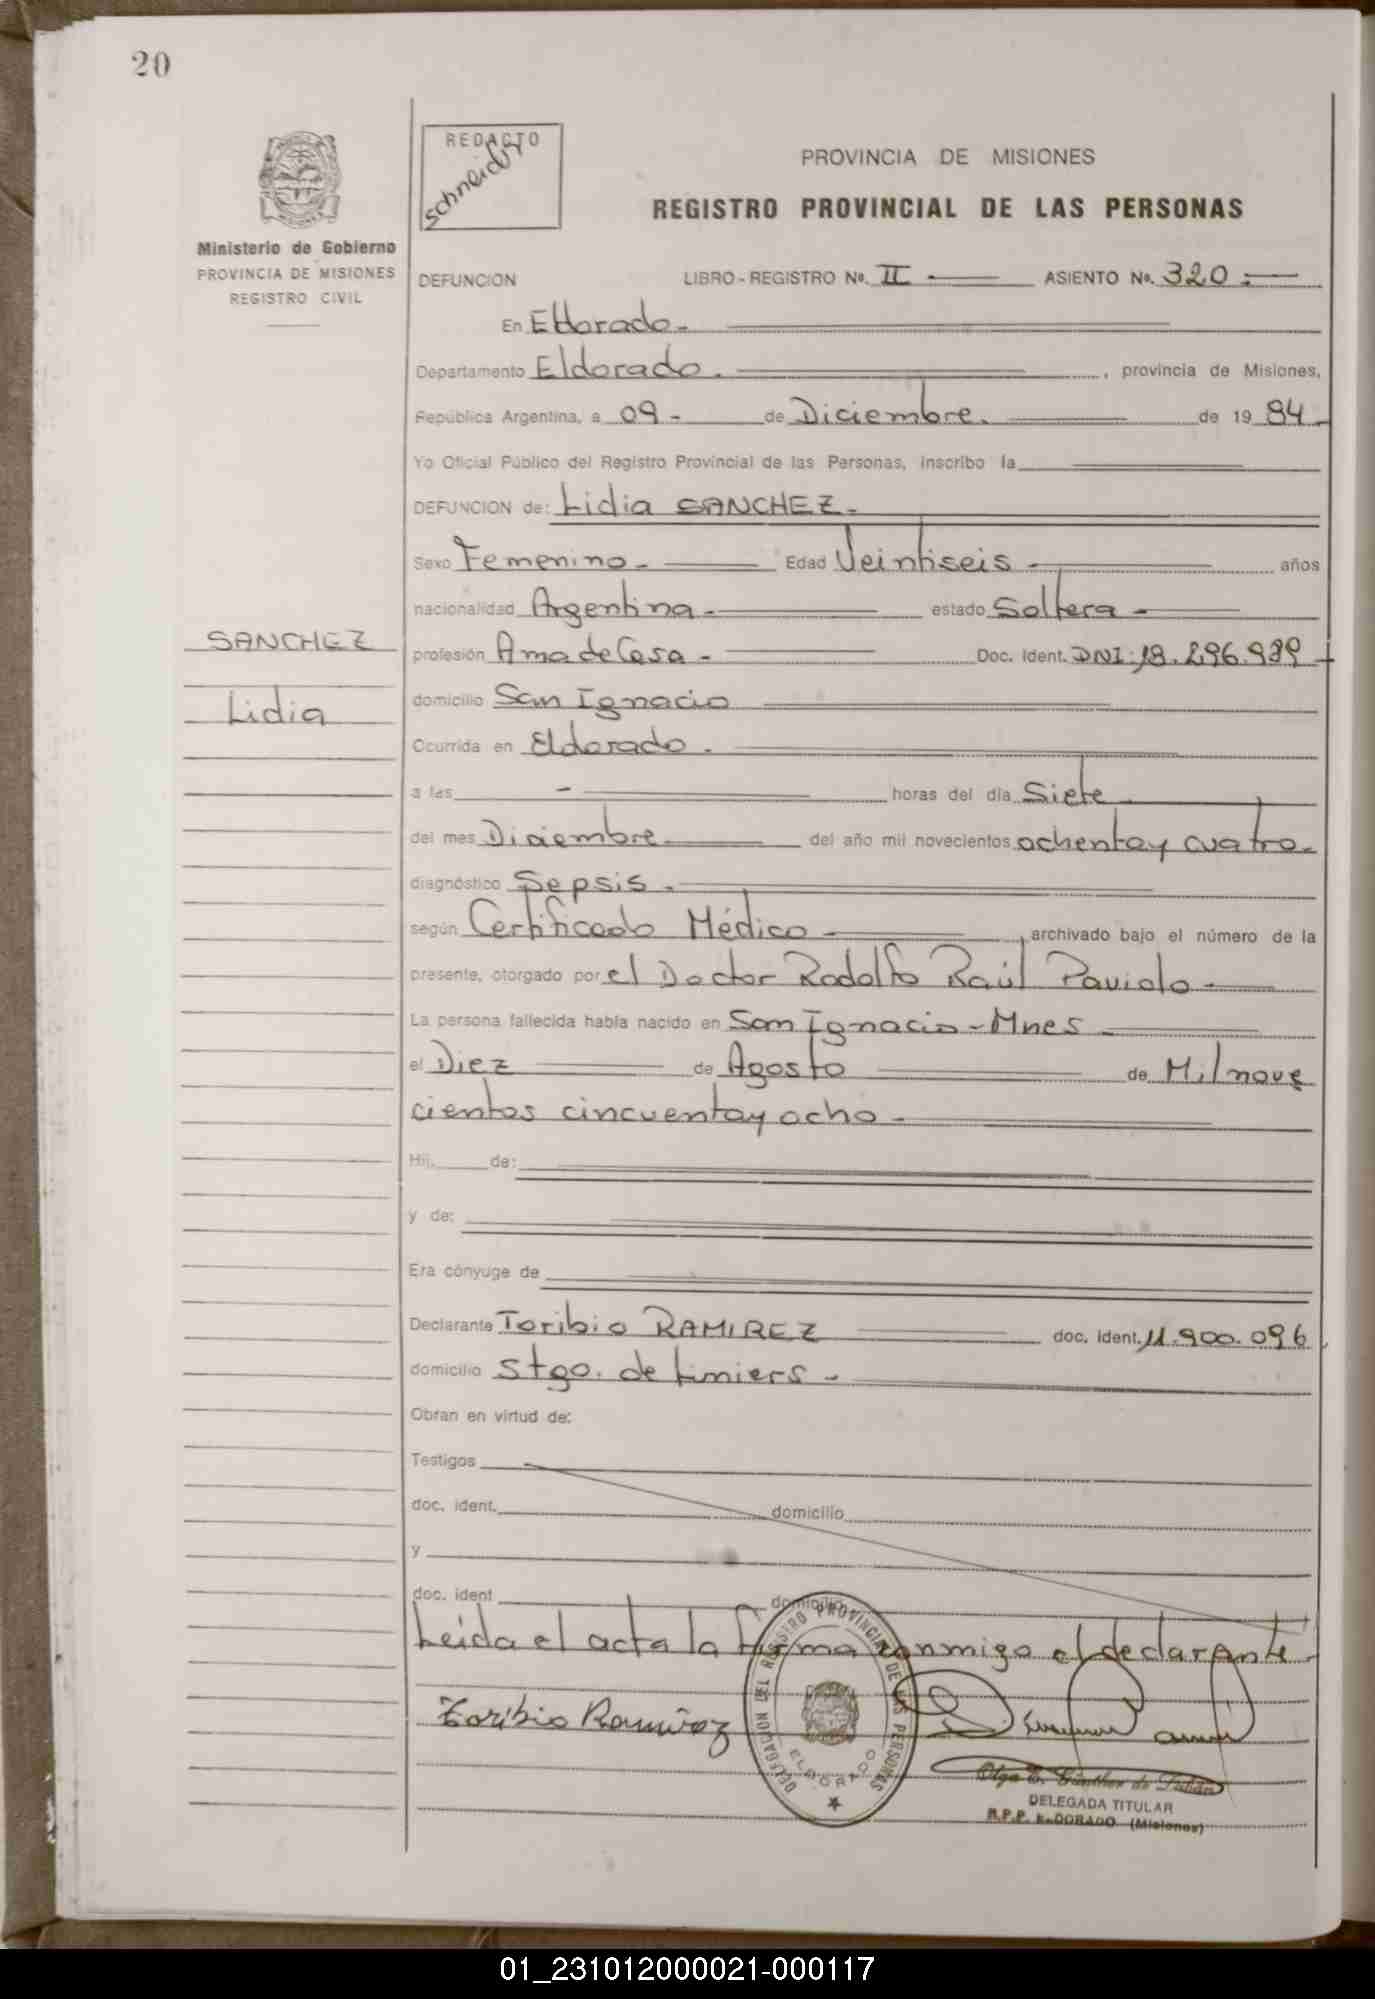 20
REDACTO
Schneider
PROVINCIA DE MISIONES
REGISTRO PROVINCIAL DE LAS PERSONAS
Ministerio de Gobierno
PROVINCIA DE MISIONES
REGISTRO CIVIL
DEFUNCION LIBRO - REGISTRO No. II ASIENTO No. 320.-
En Eldorado.-
Departamento Eldorado. , provincia de Misiones,
República Argentina, a 09.- de Diciembre. de 19 84.-
Yo Oficial Público del Registro Provincial de las Personas, inscribo la
DEFUNCION de: Lidia SANCHEZ.-
Sexo Femenino.- Edad Veintiseis.- años
nacionalidad Argentina.- estado Soltera.-
SANCHEZ
profesión Ama de Casa.- Doc. Ident. DNI: 18.296.989
Lidia
domicilio San Ignacio
Ocurrida en Eldorado.
a las - horas del día Siete
del mes Diciembre del año mil novecientos ochenta y cuatro.-
diagnóstico Sepsis.-
según Certificado Médico.- , archivado bajo el número de la
presente, otorgado por el Doctor Rodolfo Raúl Paviolo.-
La persona fallecida había nacido en San Ignacio-Mnes.-
el Diez de Agosto de Mil nove
cientos cincuenta y ocho.-
Hij. de:
y de:
Era cónyuge de
Declarante Toribio RAMIREZ doc. ident. 11.900.096
domicilio Stgo. de Liniers.-
Obran en virtud de:
Testigos
doc. ident. domicilio
y
doc. ident domicilio
Leida el acta la firma conmigo el declarante.
Toribio Ramirez
DELEGACION DEL REGISTRO PROVINCIAL DE LAS PERSONAS
ELDORADO
Olga E. Günther de
DELEGADA TITULAR
R.P.P. ELDORADO (Misiones)
01_231012000021-000117